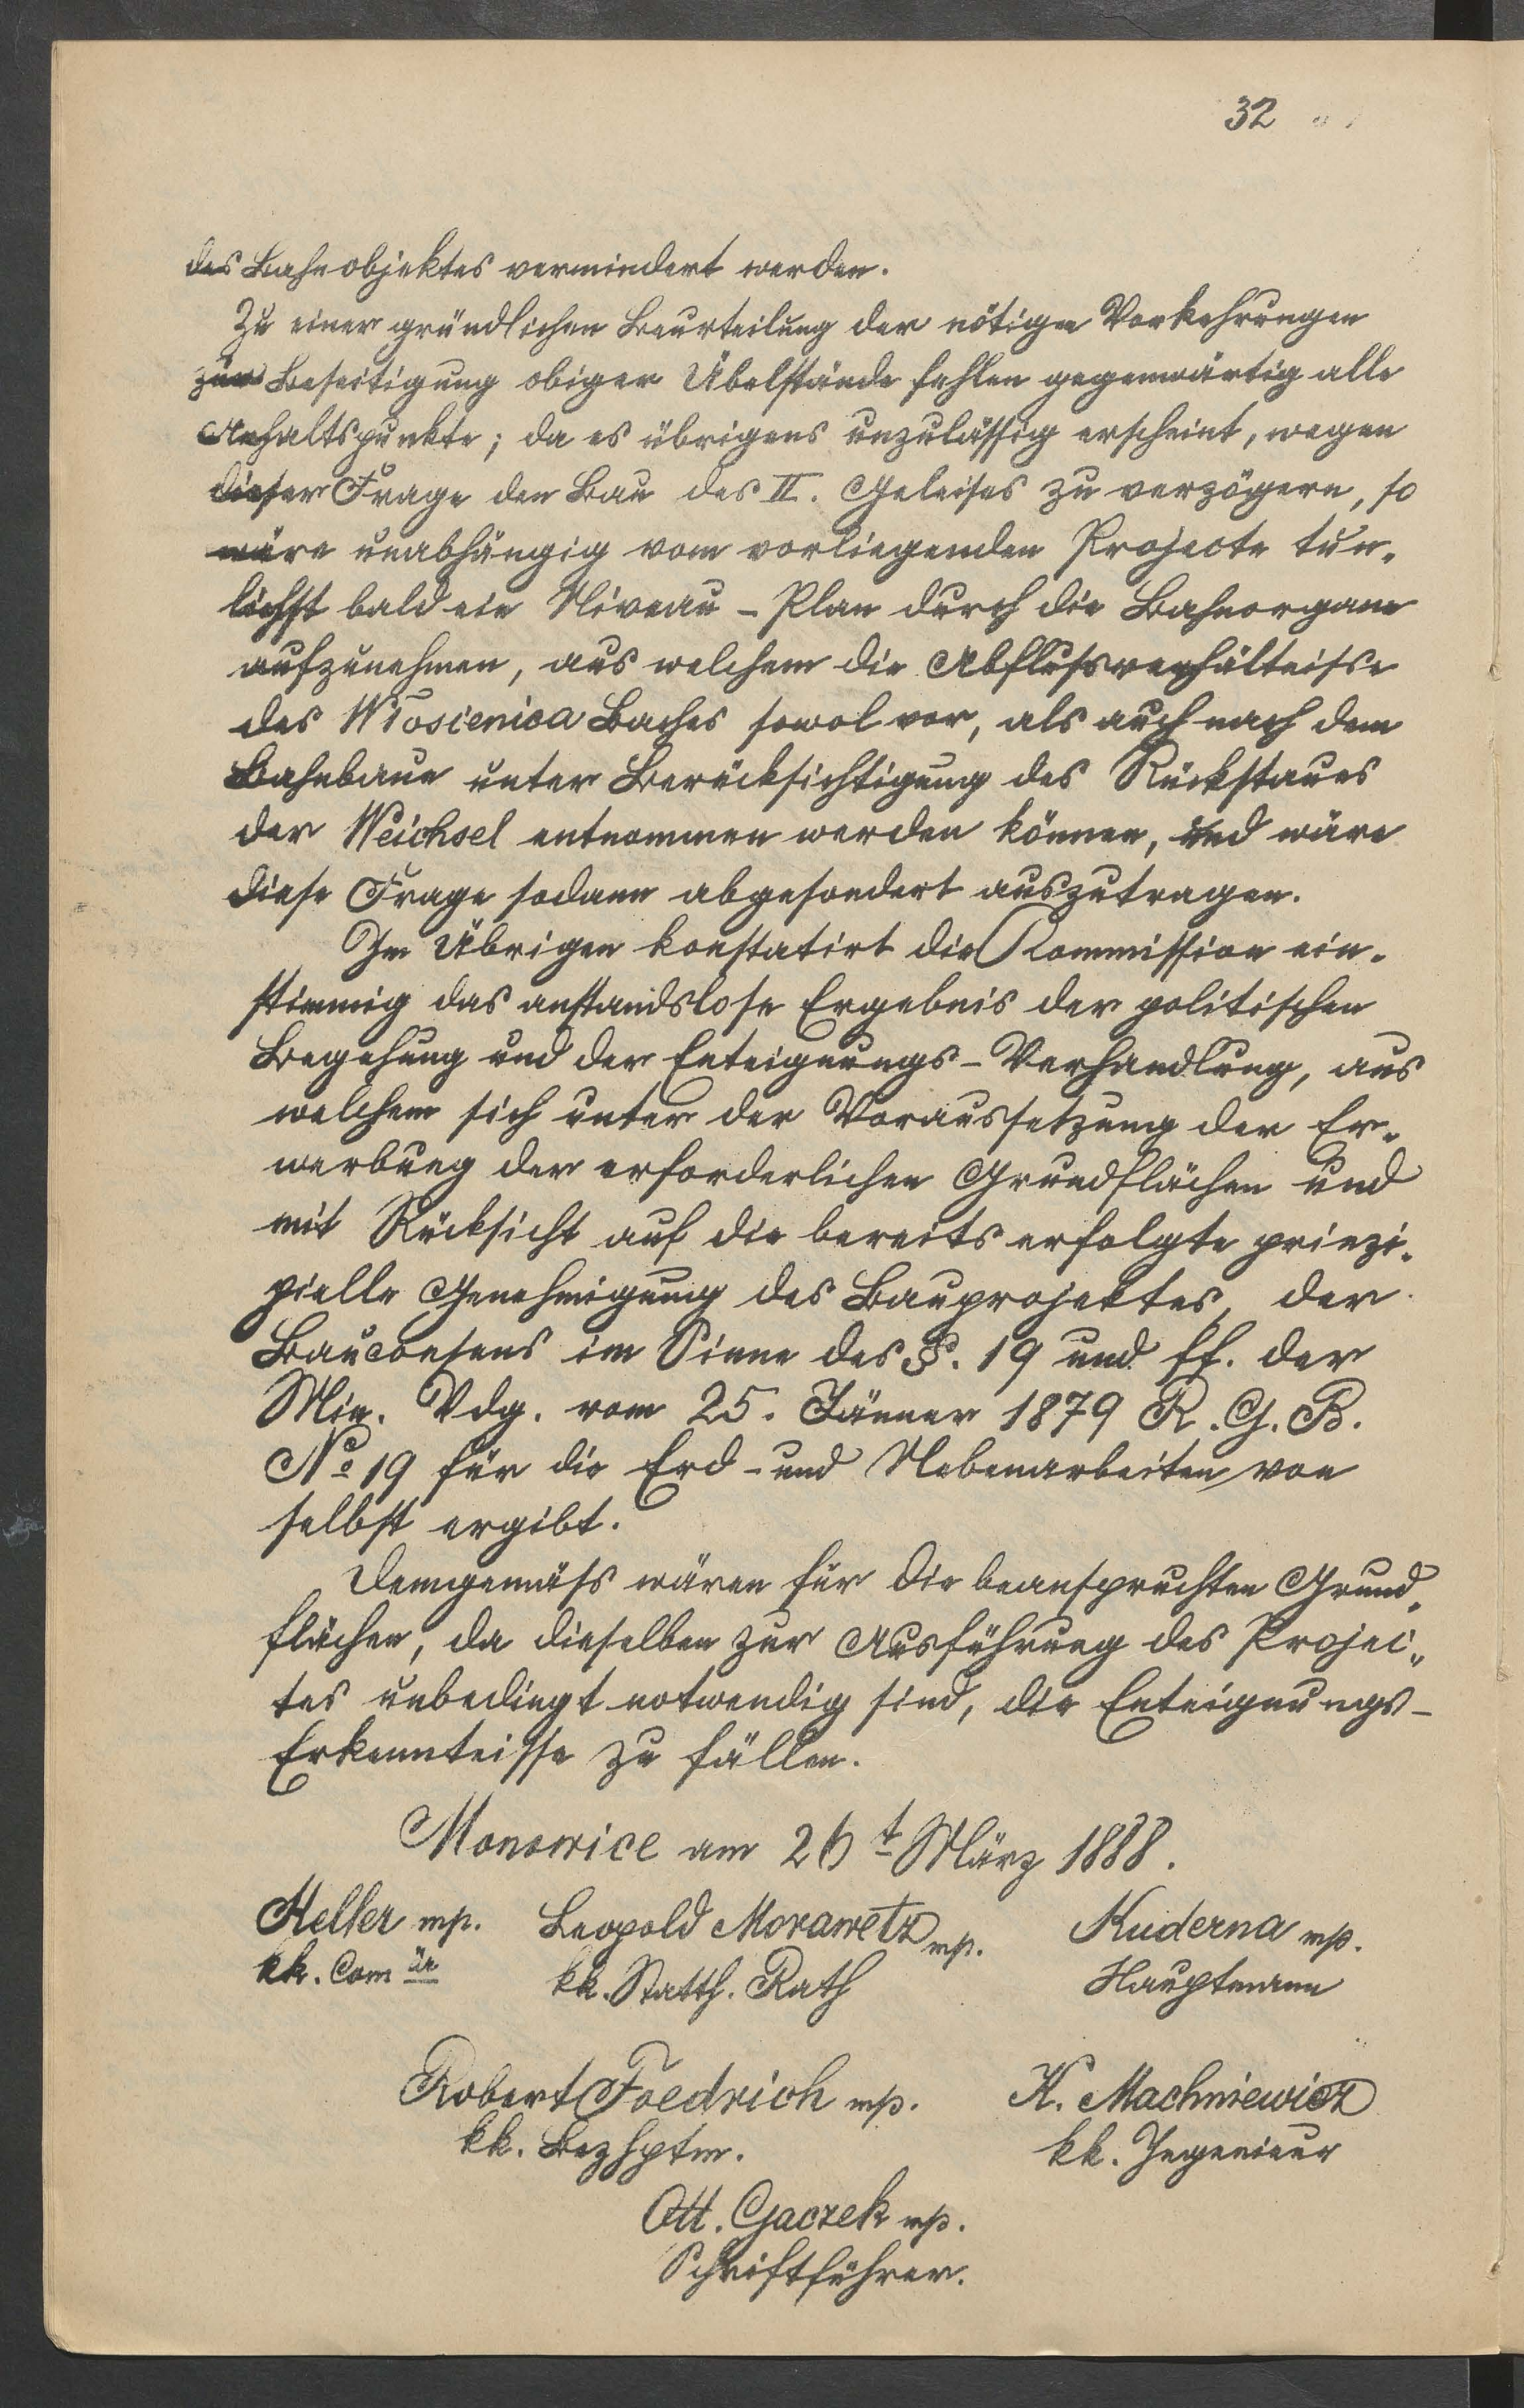 32
des Bahnobjektes vermindert werden.
Zu einer gründlichen Beurteilung der nötigen Vorkehrungen
zur Beseitigung obiger Übelstände fehlen gegenwärtig alle
Anhaltspunkte; da es übrigens unzulässig erscheint, wegen
dieser Frage den Bau des II. Geleises zu verzögern, so
wäre unabhängig vom vorliegenden Projecte tun„
lichst bald ein Niveau-Plan durch die Bahnorgane
aufzunehmen, aus welchem die Abflussverhältnisse
des Włosienica Baches sowol vor, als auch nach dem
Bahnbaue unter Berücksichtigung des Rückstaues
der Weichsel entnommen werden können, und wäre
diese Frage sodann abgesondert auszutragen.
Im Übrigen konstatirt die Kommission ein„
stimmig das anstandslose Ergebnis der politischen
Begehung und der Enteignungs-Verhandlung, aus
welchem sich unter der Voraussetzung der Er„
werbung der erforderlichen Grundflächen und
mit Rücksicht auf die bereits erfolgte prinzi„
pielle Genehmigung des Bauprojektes, der
Bauconsens im Sinne des §. 19 und ff. der
Min. Vdg. vom 25. Jänner 1879 R. G. B.
No 19 für die Erd- und Nebenarbeiten von
selbst ergibt.
Demgemäss wären für die beanspruchten Grund„
flächen, da dieselben zur Ausführung des Projec„
tes unbedingt notwendig sind, die Enteignungs-
Erkenntnisse zu fällen.
Monowice am 26t März 1888.
Heller mp. Leopold Morawetz mp. Kuderna mp.
kk. Comär kk. Statth. Rath Hauptmann
Robert Foedrich mp. K. Machniewicz
kk. Bezhptm. kk. Ingenieur
Ott. Gaczek mp.
Schriftführer.